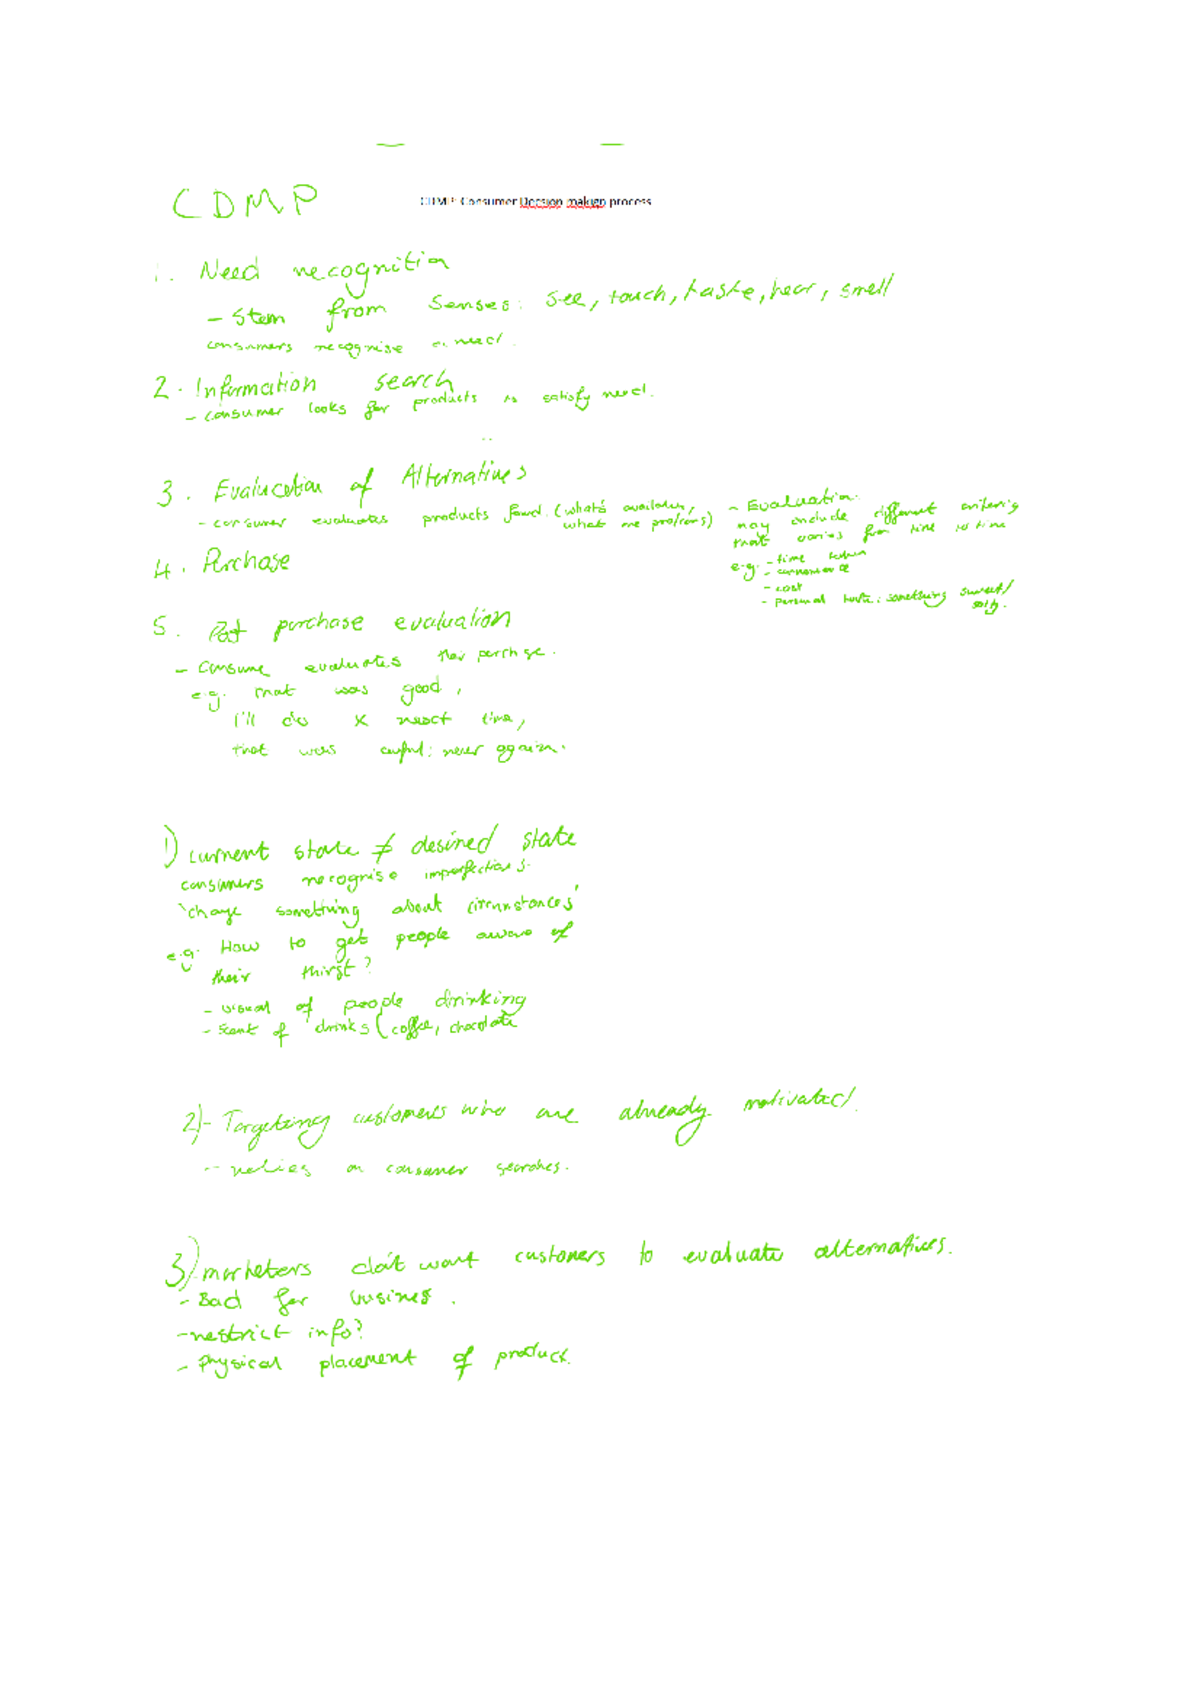 CDMP
CDMP: Consumer Decsion makign process
1. Need recognition
- Stem from Senses: See, touch, taste, hear, smell
consumers recognise a need.
2. Information search
- consumer looks for products to satisfy need.
3. Evaluation of Alternatives
- consumer evaluates products found (what's available,
what are pro/cons)
- Evaluation
may include different criteria
that varies from time to time
e.g. - time taken
- convenience
- cost
- personal taste: something sweet/
salty.
4. Purchase
5. Post purchase evaluation
- Consumer evaluates their purchase.
e.g. that was good,
I'll do x next time,
that was awful: never again.
1) current state ≠ desired state
consumers recognise imperfections.
'change something about circumstances'
e.g. How to get people aware of
their thirst?
- visual of people drinking
- Scent of drinks (coffee, chocolate
2) - Targeting customers who are already motivated.
- relies on consumer searches.
3) marketers don't want customers to evaluate alternatives.
- Bad for business.
- restrict info?
- Physical placement of product.